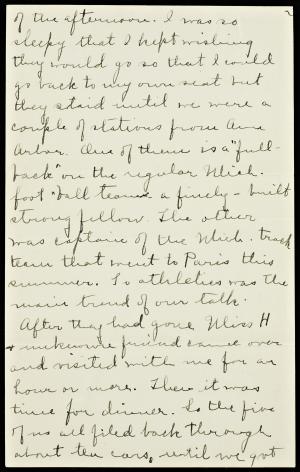 of the afternoon. I was so
sleepy that I kept wishing
they would go so that I could
go back to my own seat but
they staid until we were a
couple of stations from Ann
Arbor. One of them is a "full-
back" on the regular Mich.
foot ball team a finely-built
strong fellow. The other
was captain of the Mich. track
team that went to Paris this
summer. So athletics was the
main trend of our talk.
After they had gone Miss H
+ unknown friend came over
and visited with me for an
hour or more. Then it was
time for dinner. So the five
of us all filed back through
about ten cars, until we got